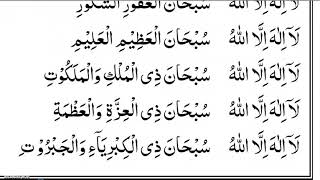 لَآ اِلٰهَ اِلَّا اللّٰهُ سُبْحَانَ الْغَفُوْرِ الشَّكُوْرِ
لَآ اِلٰهَ اِلَّا اللّٰهُ سُبْحَانَ الْعَظِيْمِ الْعَلِيْمِ
لَآ اِلٰهَ اِلَّا اللّٰهُ سُبْحَانَ ذِى الْمُلْكِ وَالْمَلَكُوْتِ
لَآ اِلٰهَ اِلَّا اللّٰهُ سُبْحَانَ ذِى الْعِزَّةِ وَالْعَظْمَةِ
لَآ اِلٰهَ اِلَّا اللّٰهُ سُبْحَانَ ذِى الْكِبْرِيَآءِ وَالْجَبْرُوْتِ